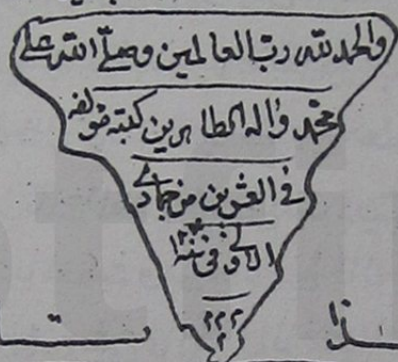 والحمد لله رب العالمين وصلی الله علی
محمد واله الطاهرين كتبه مؤلفه
في العشرين من جمادی
الاولی في سنة